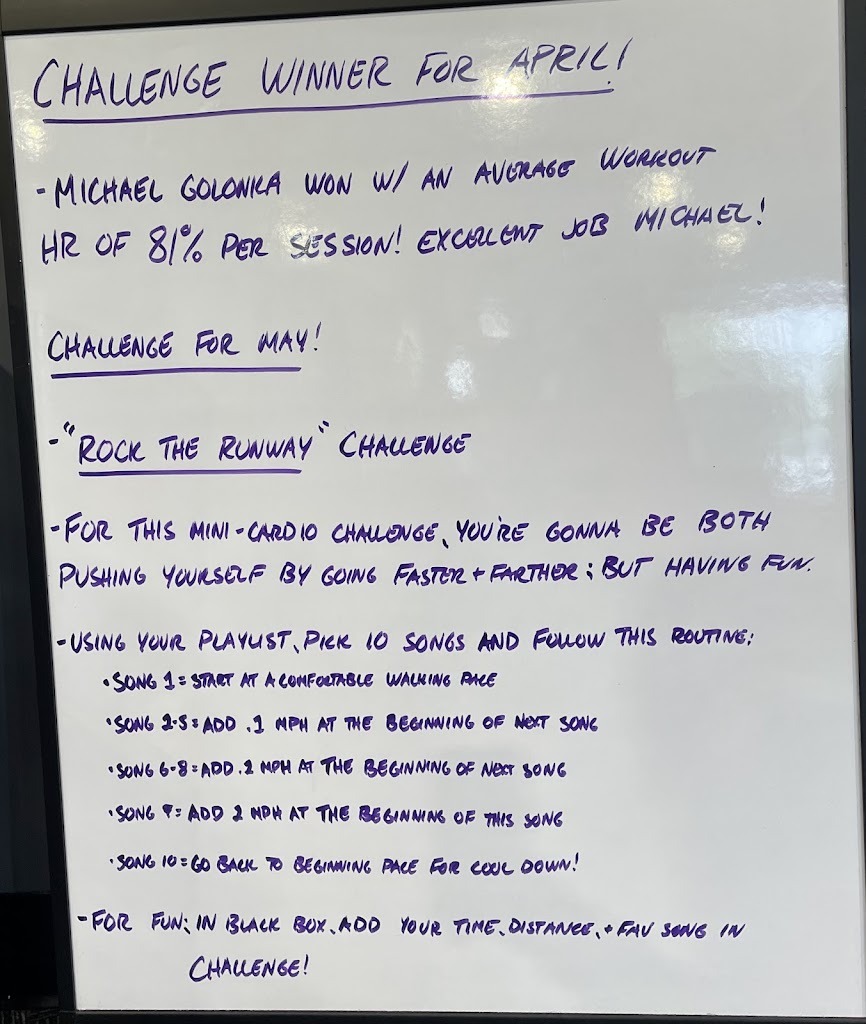 CHALLENGE WINNER FOR APRIL!
- MICHAEL GOLONKA WON W/ AN AVERAGE WORKOUT
HR OF 81% PER SESSION! EXCELLENT JOB MICHAEL!
CHALLENGE FOR MAY!
- "ROCK THE RUNWAY" CHALLENGE
- FOR THIS MINI-CARDIO CHALLENGE, YOU'RE GONNA BE BOTH
PUSHING YOURSELF BY GOING FASTER + FARTHER; BUT HAVING FUN.
- USING YOUR PLAYLIST, PICK 10 SONGS AND FOLLOW THIS ROUTINE:
• SONG 1 = START AT A COMFORTABLE WALKING PACE
• SONG 2-5 = ADD .1 MPH AT THE BEGINNING OF NEXT SONG
• SONG 6-8 = ADD .2 MPH AT THE BEGINNING OF NEXT SONG
• SONG 9 = ADD 2 MPH AT THE BEGINNING OF THIS SONG
• SONG 10 = GO BACK TO BEGINNING PACE FOR COOL DOWN!
- FOR FUN: IN BLACK BOX, ADD YOUR TIME, DISTANCE, + FAV SONG IN
CHALLENGE!